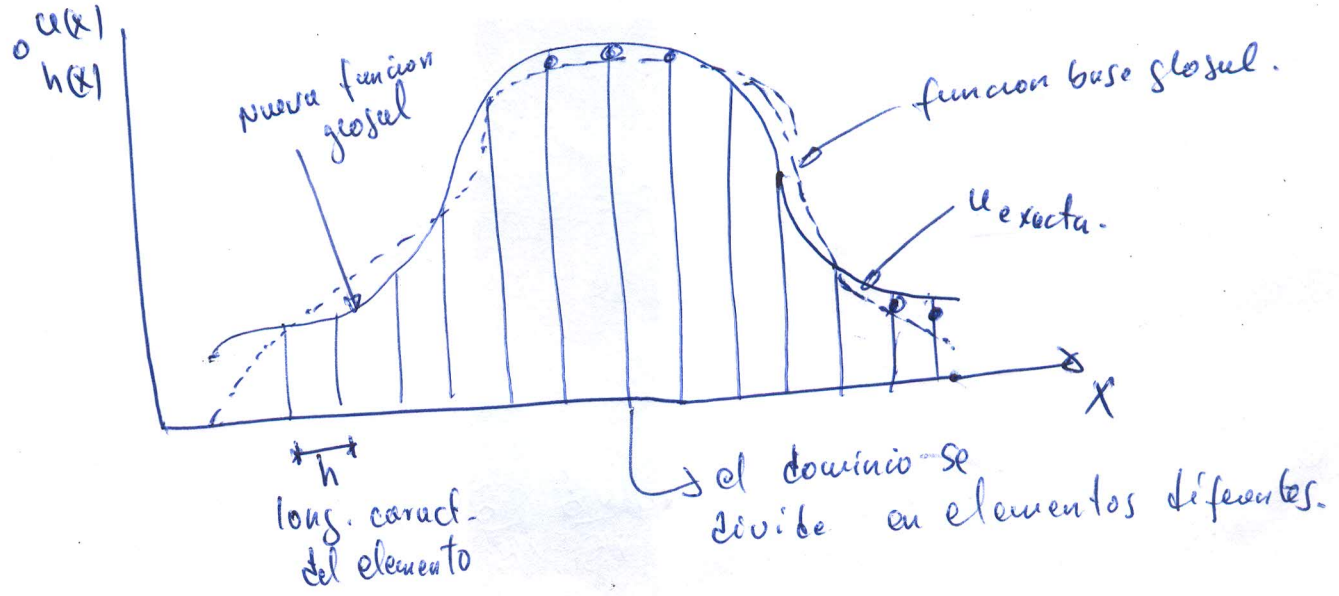 u(x)
o
h(x)
Nueva funcion
glosal
funcion base glosal.
u exacta.
X
h
long. caract.
del elemento
el dominio se
divide en elementos diferentes.